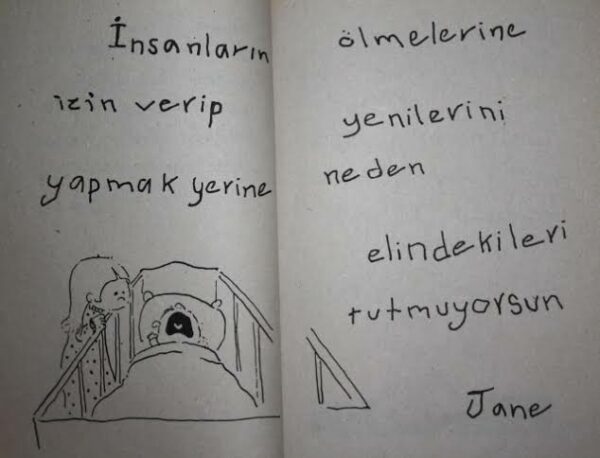 İnsanların ölmelerine
izin verip yenilerini
yapmak yerine neden
elindekileri
tutmuyorsun
Jane